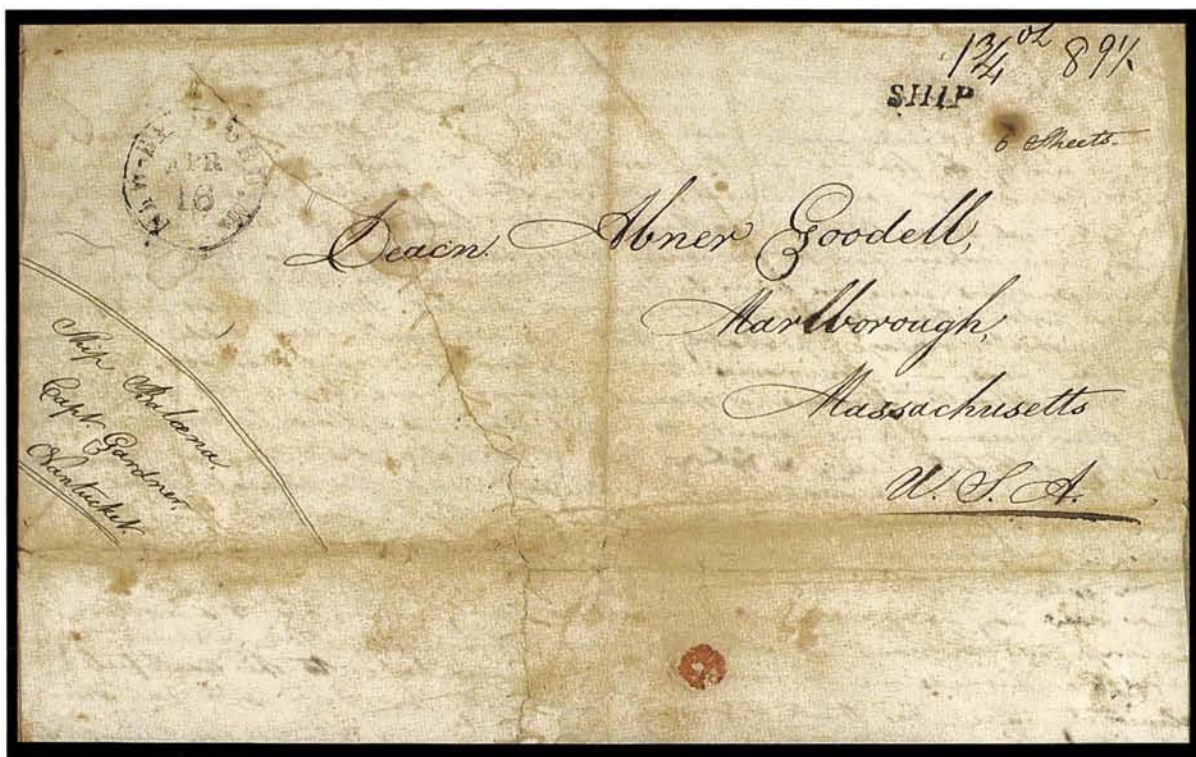 1¾ oz 89½
SHIP
6 Sheets.
APR
16
Deacn. Abner Goodell,
Marlborough,
Massachusetts
U. S. A.
Ship Balæna,
Capt. Gardner,
Nantucket.